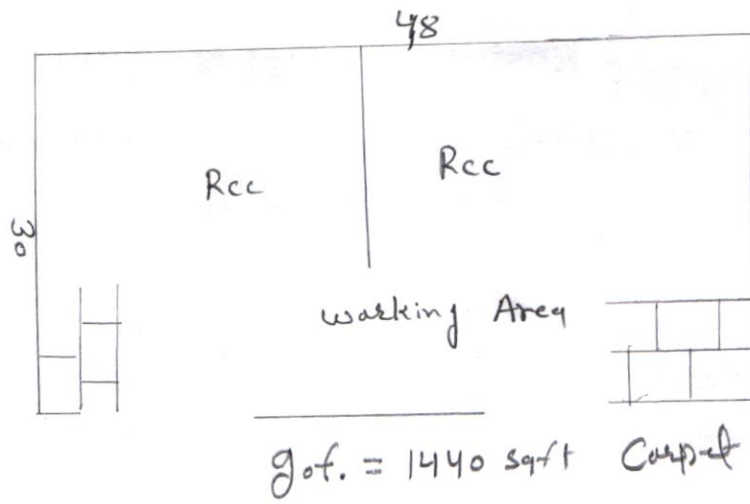 48
Rcc Rcc
30
working Area
g.of. = 1440 sqft Carpet